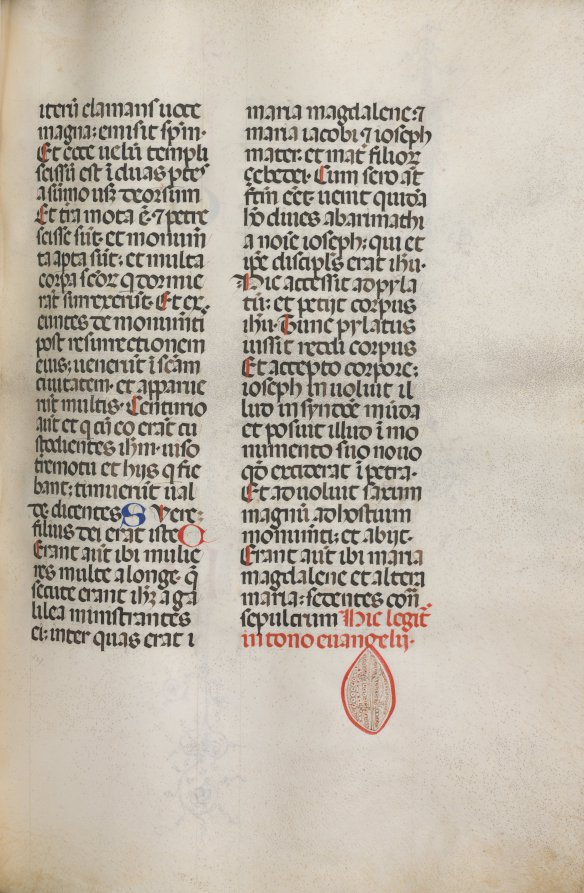 iterū clamans uoce
magna: emisit sp̄m.
Et ecce uelū templi
scissū est ī duas p̱tes
a sūmo usqꝫ deorsum
Et t̄ra mota ē. ⁊ petre
scisse sūt. et monumī
ta apta sūt: et multa
corpa sc̄oꝝ q̄ dormie
rāt surrexerūt. Et ex.
euntes de monumēti
post resurrectionem
eius: uenerūt ī sc̄am
ciuitatem. et apparue
rūt multis. Centurio
aūt et q̄ cū eo erāt cu
stodientes ih̄m. uiso
t̄remotu et hijs q̄ fie
bant: timuerūt ual
de dicentes S Vere:
filius dei erat iste C
Erant aūt ibi mulie
res multe a longe. q̄
secute erant ih̄ꝫ a ga
lilea ministrantes
ei: inter quas erat ī
maria magdalene: ⁊
maria iacobi ⁊ ioseph
mater: et mat̄ filioꝝ
çebedei. Cum sero aūt
fc̄m eēt: uenit quidā
hō diues ab arimathi
a noīe ioseph: qui et
ip̄e discipl̄s erat ih̄u.
Hic accessit ad pyla
tū: et petijt corpus
ih̄u. Tunc pylatus
iussit reddi corpus
Et accepto corpore:
ioseph inuoluit il
lud in syndōe mūda
et posuit illud ī mo
numento suo nouo
qd̄ exciderat ī petra.
Et aduoluit saxum
magnū ad hostium
monumēti: et abijt.
Erant aūt ibi maria
magdalene et altera
maria: sedentes cont̄
sepulcrum Hic legit̄
in tono euangelij.